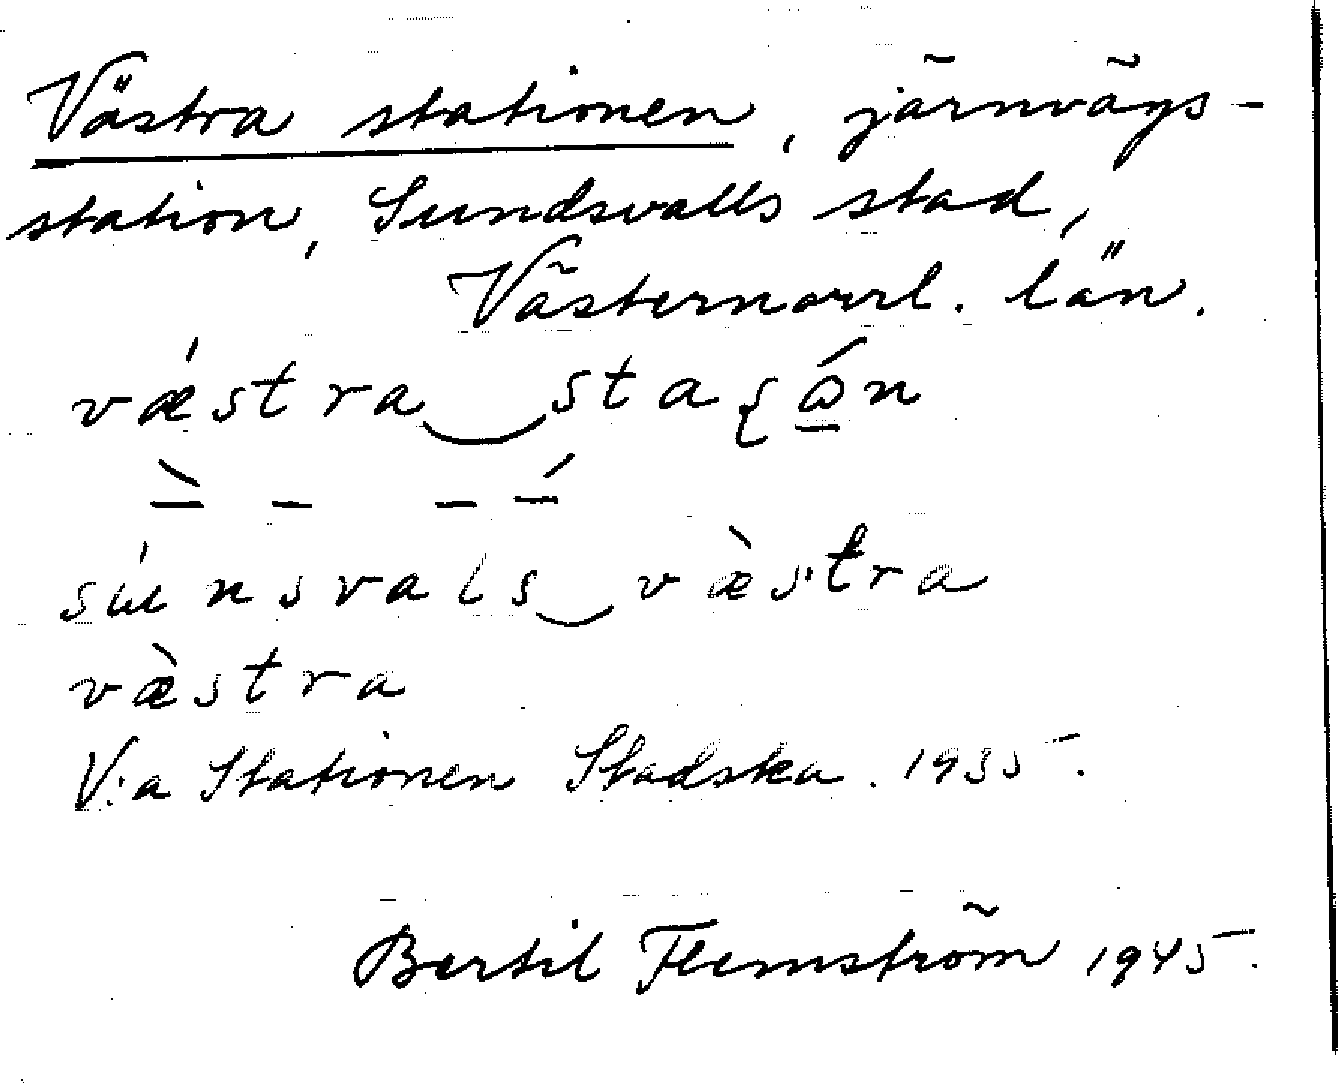 Västra stationen, järnvägs-
station, Sundsvalls stad,
Västernorrl. län.
vǽstra‿staʂɷ́n
\– – – –́
súnsvals‿væ̀stra
væ̀stra
V:a Stationen Stadska. 1935.
Bertil Flemström 1945.